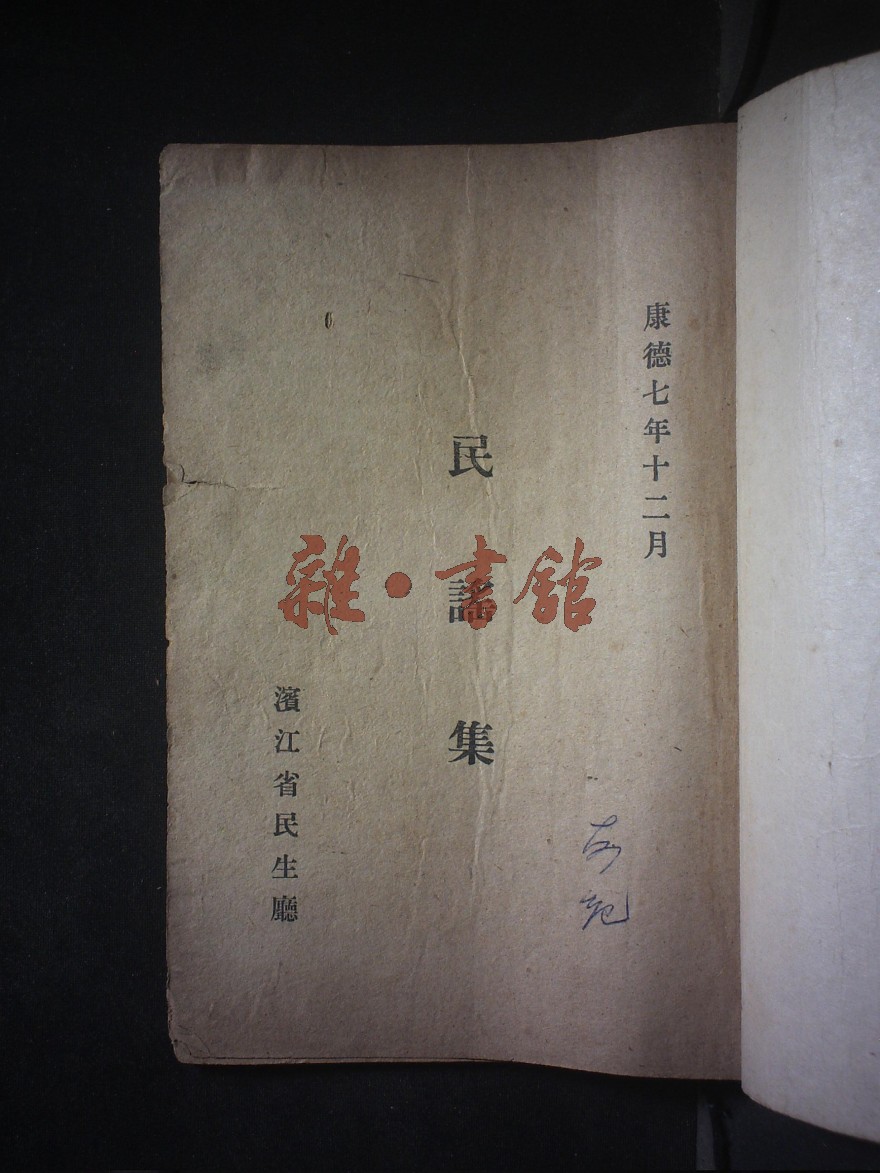 康德七年十二月
民謠集
濱江省民生廳
雜·書館